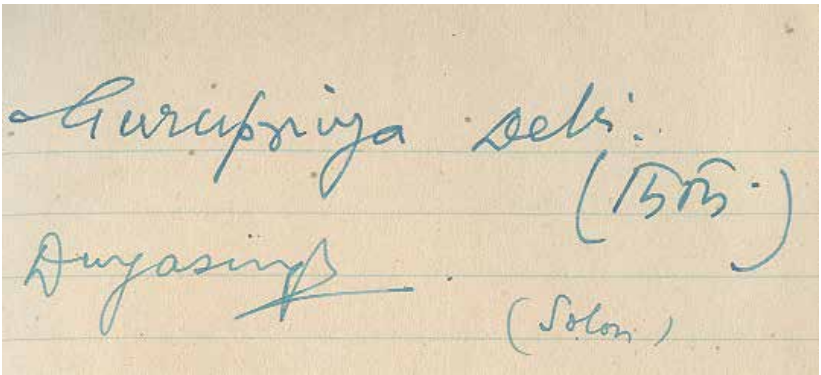 Gurupriya Debi.
(দিদি)
Durgasingh
(Solon)